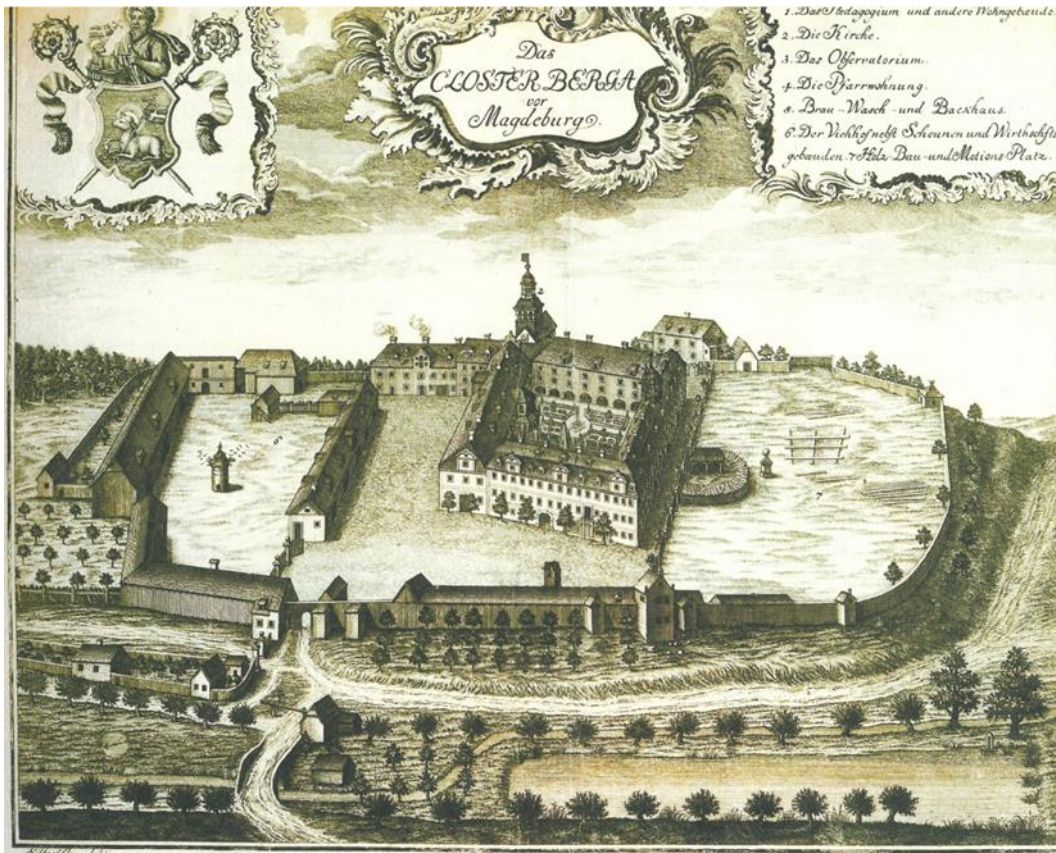 Das
CLOSTER BERGA
vor
Magdeburg.
1. Das Pædagogium und andere Wohngebæude.
2. Die Kirche.
3. Das Observatorium.
4. Die Pfarrwohnung.
5. Brau-Wasch-und Backhaus.
6. Der Viehhof nebst Scheunen und Wirthschfts
gebæuden. 7 Holz-Bau-und Motions-Platz.